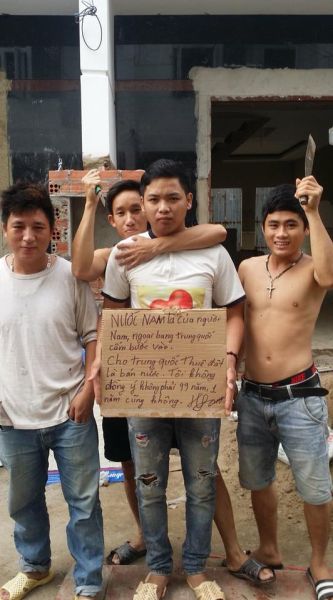 NƯỚC NAM là của người
Nam, ngoại bang trung quốc
cấm bước vào.
Cho trung quốc Thuê đất
là bán nước. Tôi không
đồng ý không phải 99 năm, 1
năm cũng không.